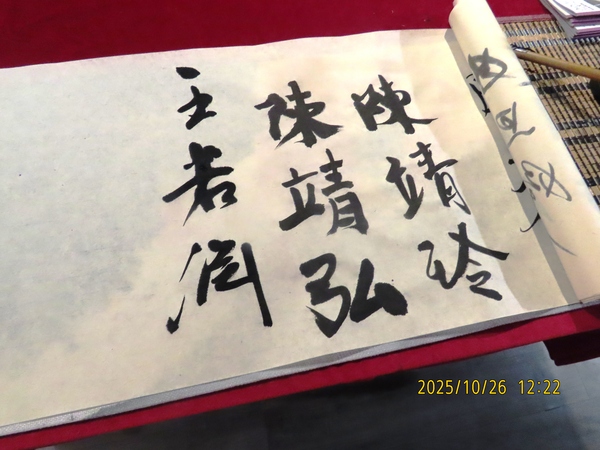 陳靖玲
陳靖弘
主若
2025/10/26 12:22